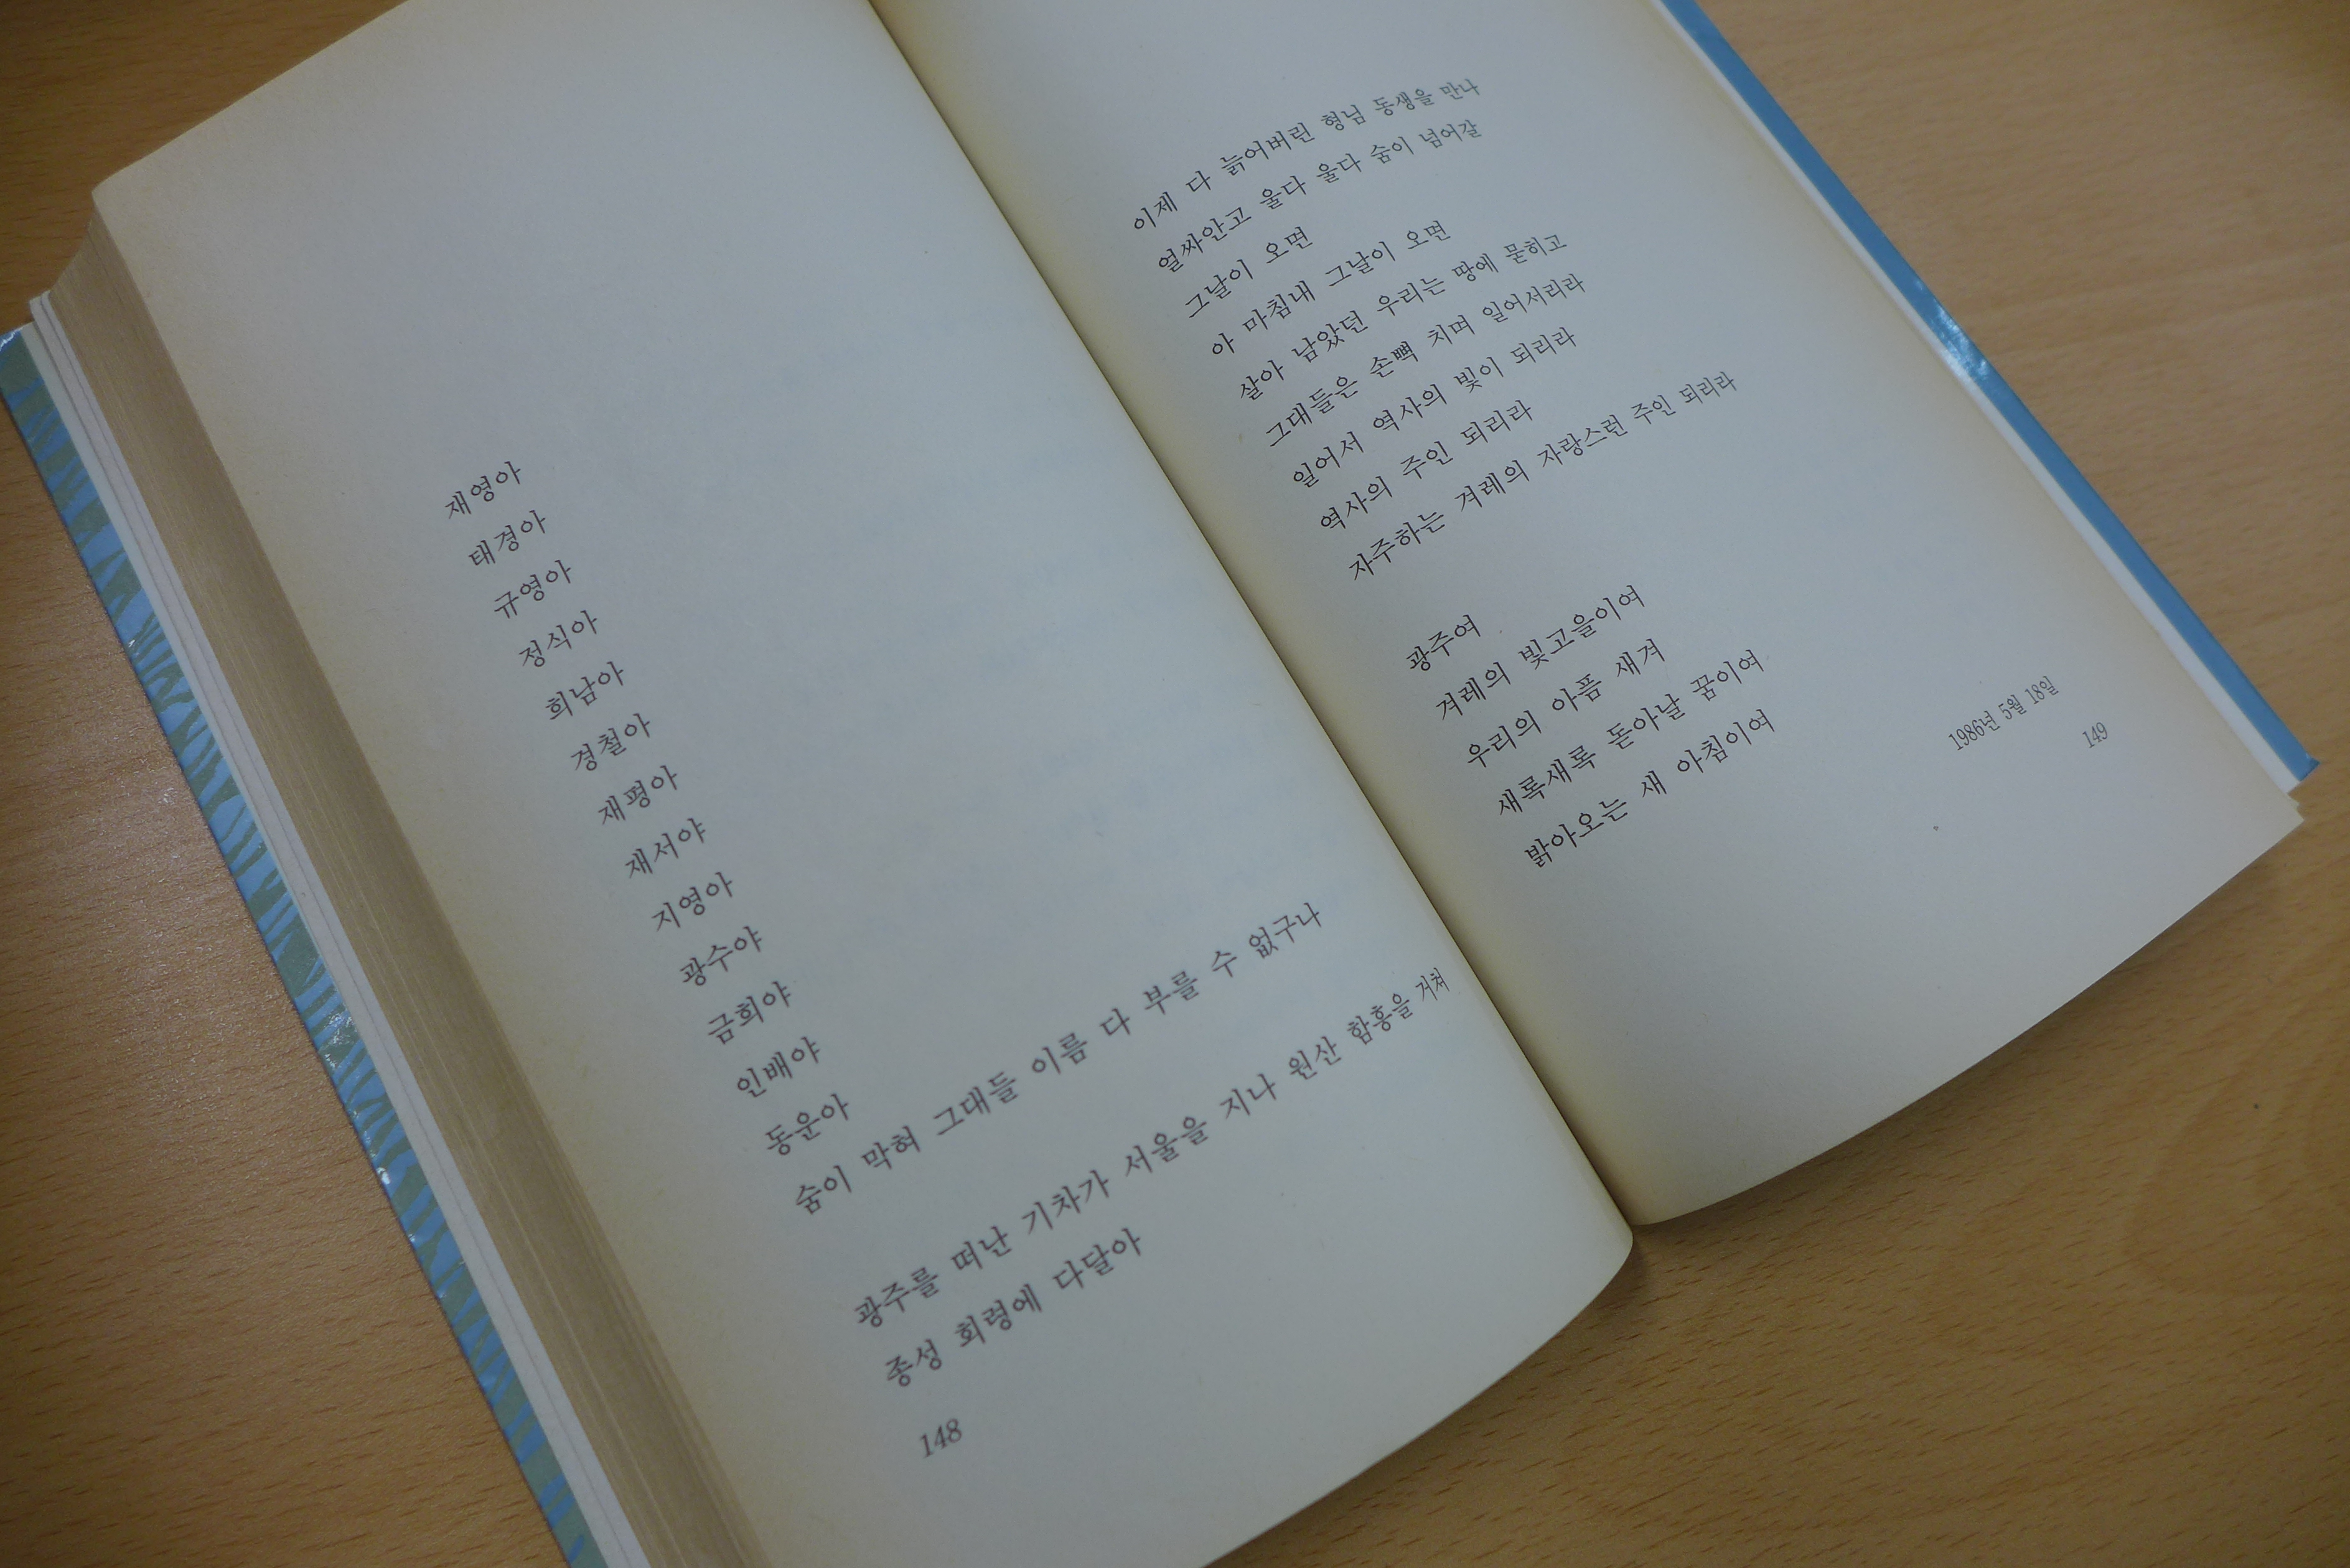 재영아
태경아
규영아
정식아
희남아
경철아
재평아
재서야
지영아
광수야
금희야
인배야
동운아
숨이 막혀 그대들 이름 다 부를 수 없구나
광주를 떠난 기차가 서울을 지나 원산 함흥을 거쳐
종성 회령에 다달아
148
이제 다 늙어버린 형님 동생을 만나
얼싸안고 울다 울다 숨이 넘어갈
그날이 오면
아 마침내 그날이 오면
살아 남았던 우리는 땅에 묻히고
그대들은 손뼉 치며 일어서리라
일어서 역사의 빛이 되리라
역사의 주인 되리라
자주하는 겨레의 자랑스런 주인 되리라
광주여
겨레의 빛고을이여
우리의 아픔 새겨
새록새록 돋아날 꿈이여
밝아오는 새 아침이여
1986년 5월 18일
149